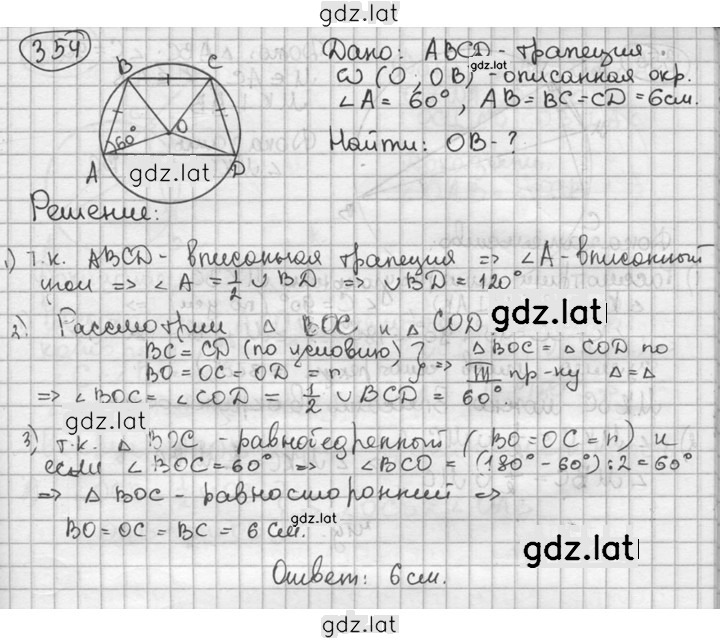 gdz.lat
354
Дано: ABCD - трапеция
ω (O; OB) - описанная окр.
∠A = 60°, AB = BC = CD = 6см.
Найти: OB - ?
B C
60° O
A D
gdz.lat
gdz.lat
Решение:
1) т.к. ABCD - вписанная трапеция => ∠A - вписанный
угол => ∠A = 1/2 ∪BD => ∪BD = 120°
gdz.lat
2) Рассмотрим △ BOC и △ COD.
BC = CD (по условию) } => △BOC = △COD по
BO = OC = OD = r III пр-ку △=△
=> ∠BOC = ∠COD = 1/2 ∪BCD = 60°.
gdz.lat
3) т.к. △ BOC - равнобедренный (BO = OC = r) и
если ∠BOC = 60° => ∠BCO = (180° - 60°) : 2 = 60°
=> △ BOC - равносторонний =>
BO = OC = BC = 6 см.
gdz.lat
gdz.lat
Ответ: 6 см.
gdz.lat